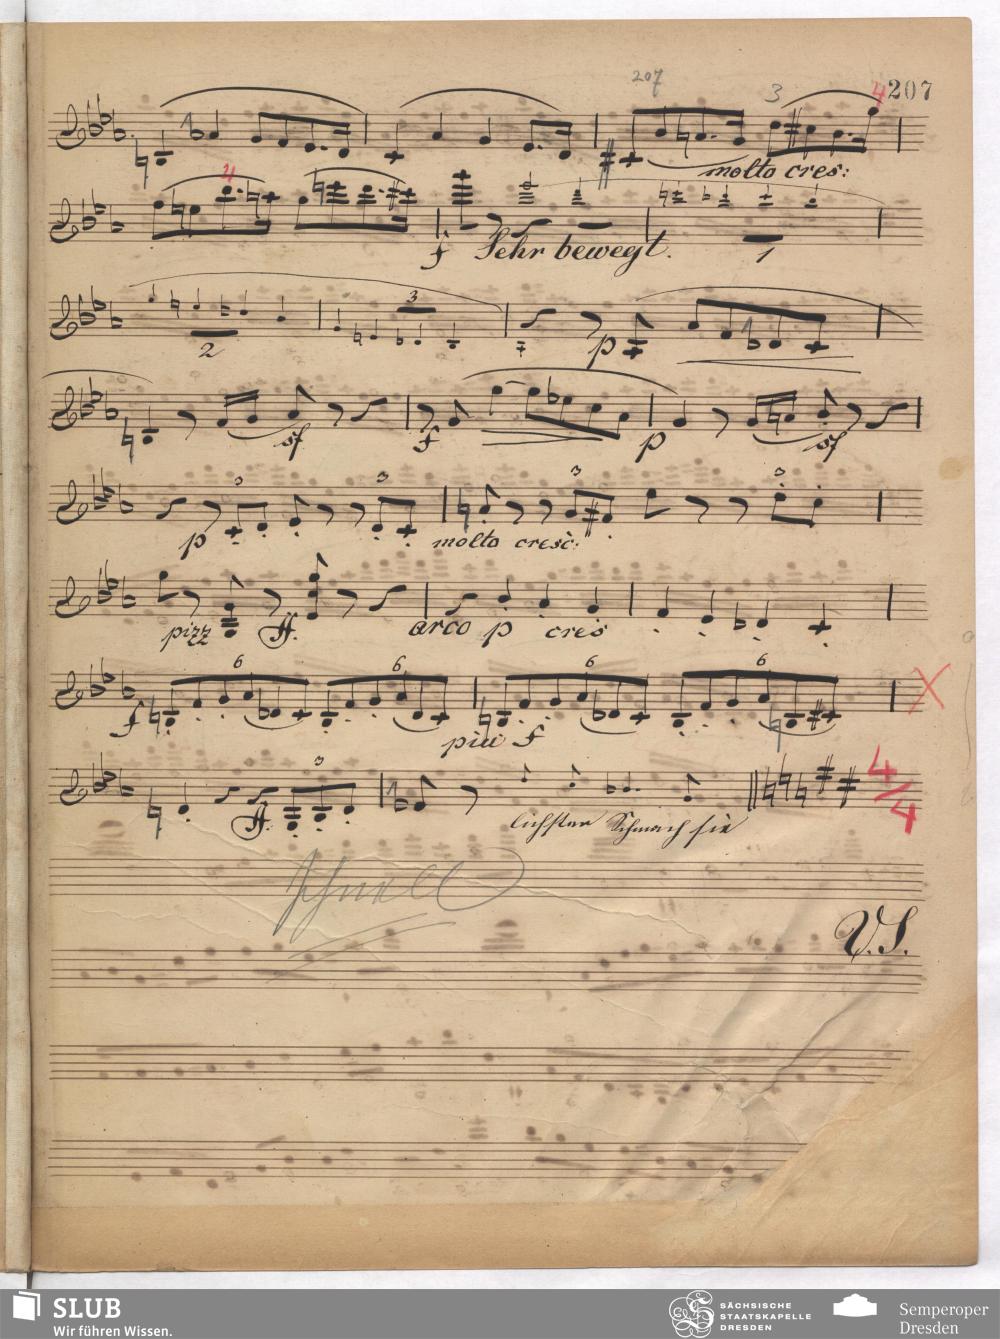 207
3 4 207
molto cres:
4
f Sehr bewegt. 1
2 3 p
sf f p sf
3 3 3 3
p molto cresc:
pizz ff. arco p cres
6 6 6 6
f più f
3
ff. lichster Schmach sie 4/4
Schnell
V.S.
SLUB
Wir führen Wissen.
SÄCHSISCHE
STAATSKAPELLE
DRESDEN
Semperoper
Dresden